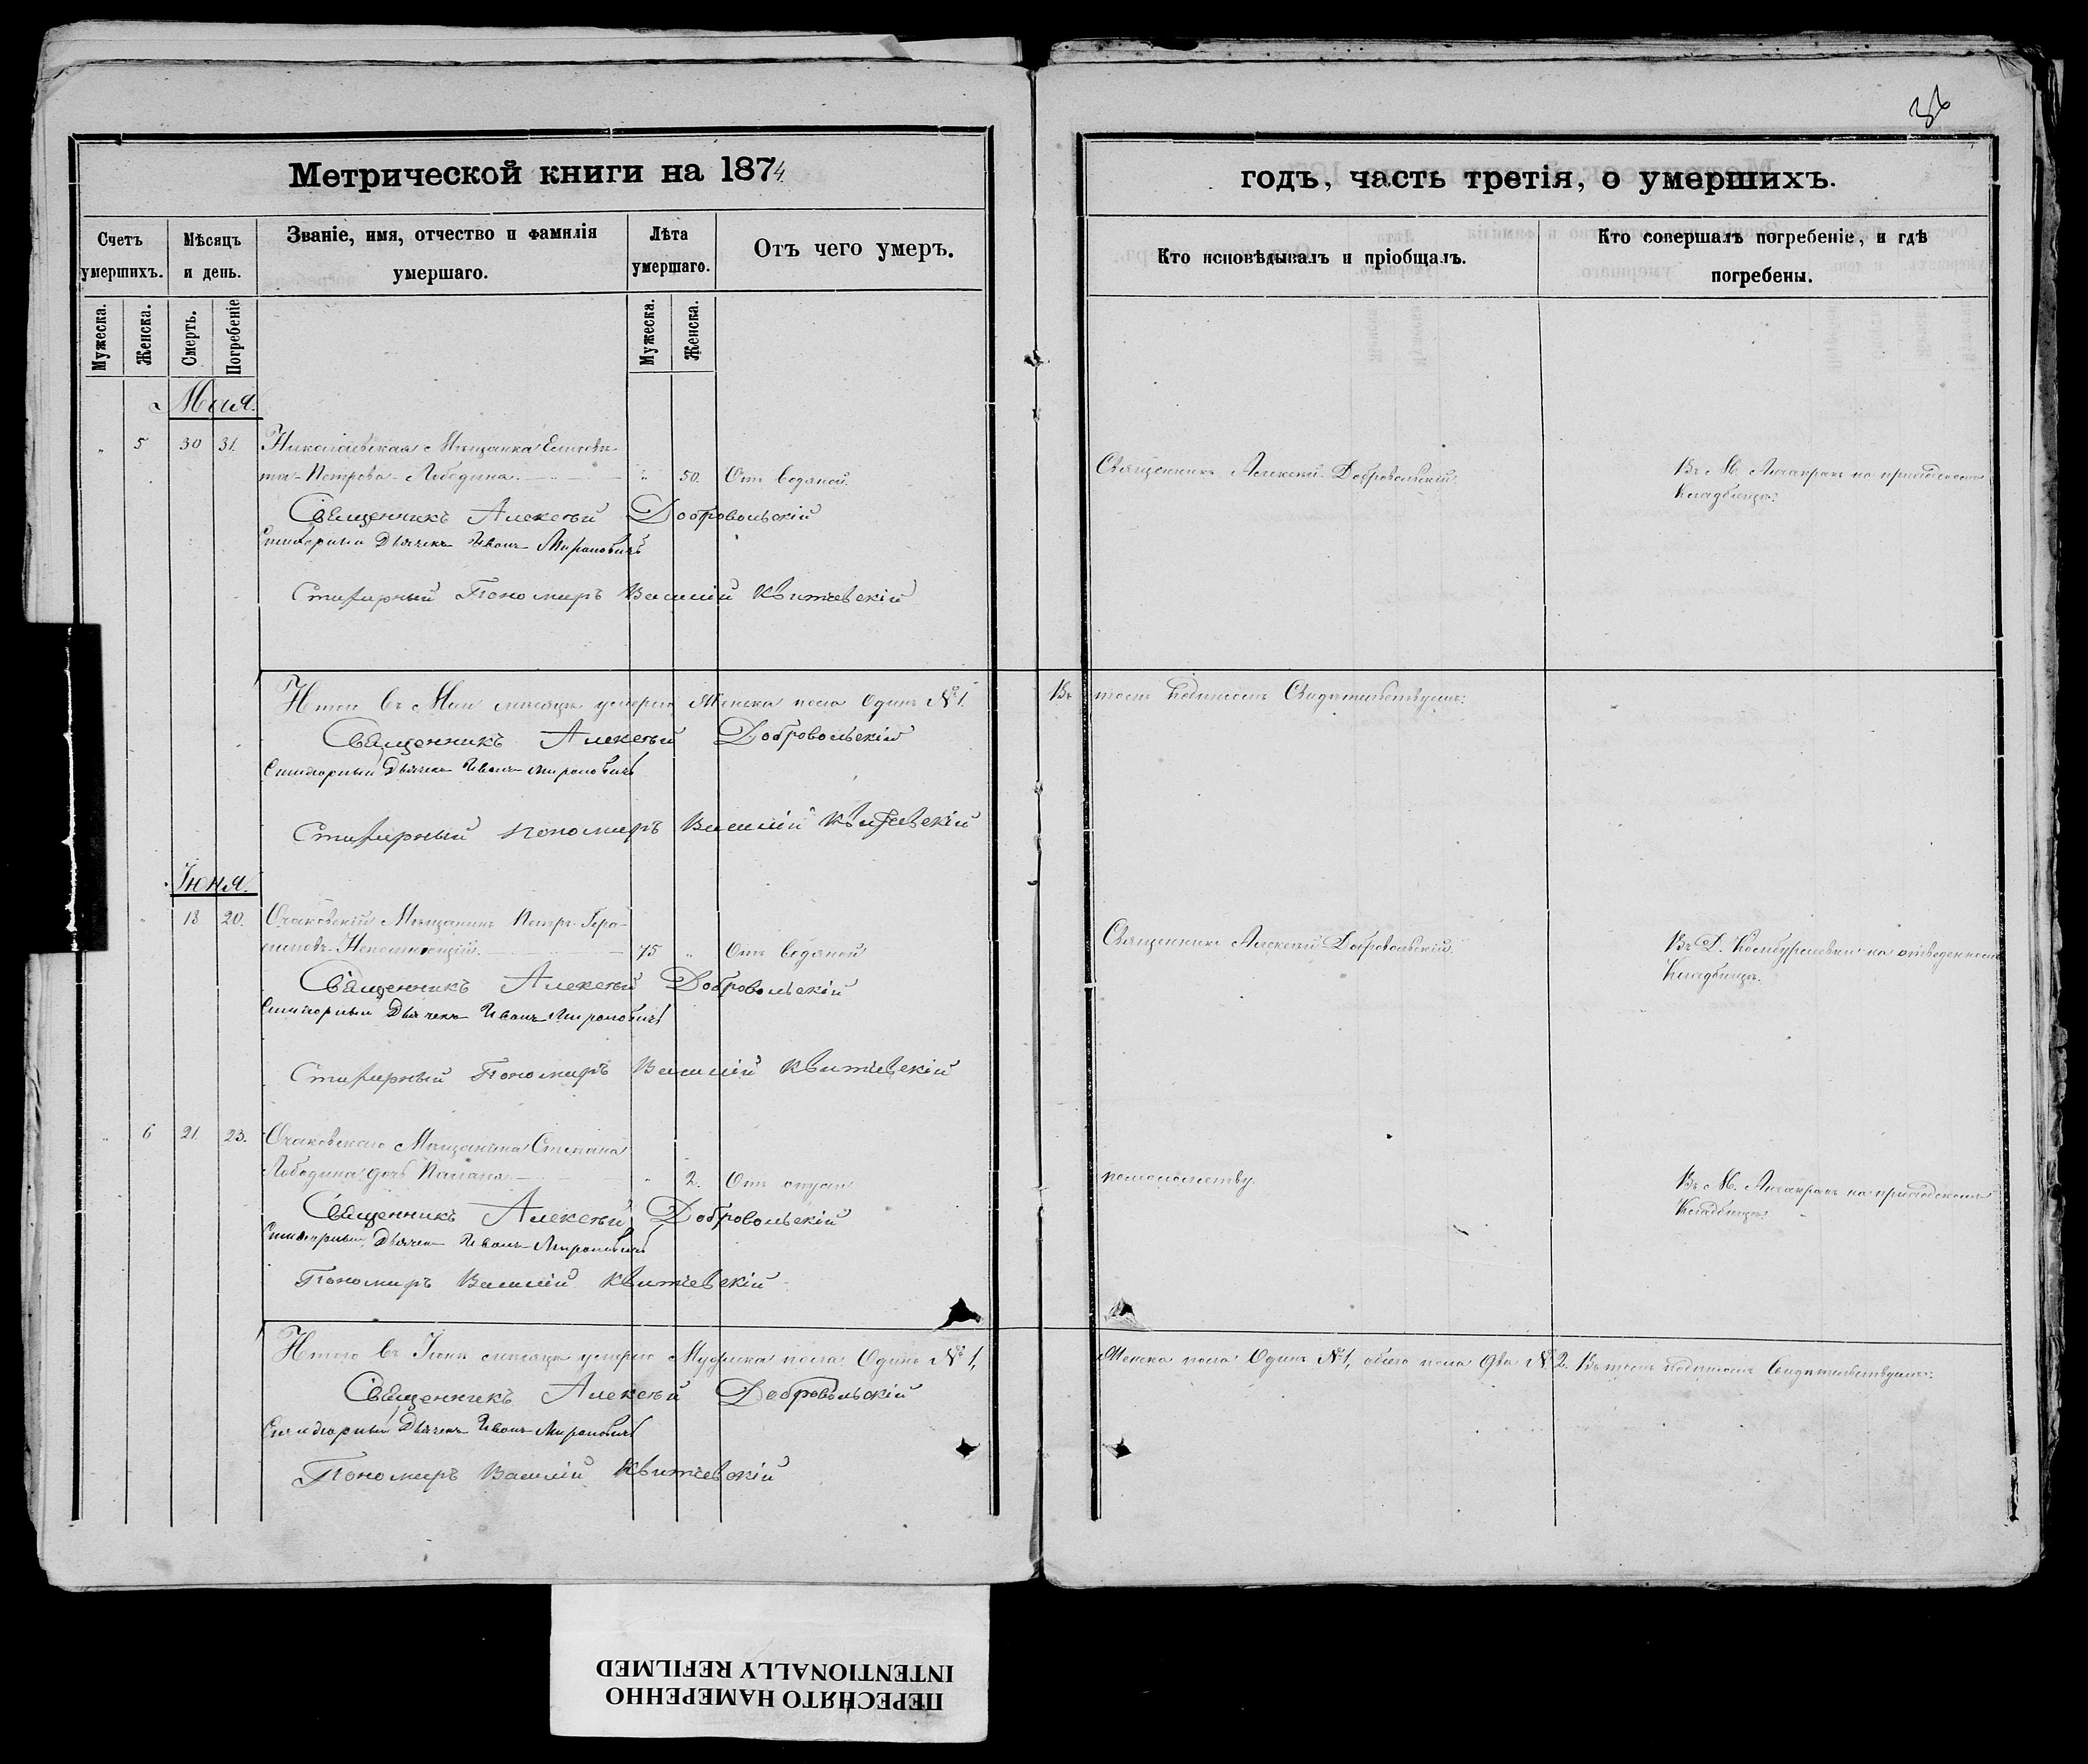 36
Метрической книги на 1874
годъ, часть третія, о умершихъ.
Счетъ умершихъ.
Мѣсяцъ и день.
Званіе, имя, отчество и фамилія умершаго.
Лѣта умершаго.
Отъ чего умеръ.
Кто исповѣдывалъ и пріобщалъ.
Кто совершалъ погребеніе, и гдѣ погребены.
Мужеска.
Женска.
Смерть.
Погребеніе
Мужеска.
Женска.
Мая.
" 5 30 31. Николаевская Мѣщанка Елисаве-
та Петрова Лебедина. " 50. Отъ водяной.
Священникъ Алексѣй Добровольскій.
Въ М. на приходскомъ
Кладбищѣ.
Священникъ Алексѣй Добровольскій
Стихарный Дьячекъ Иванъ Мироновичъ
Стихарный Пономарь Василій Квитчевскій
Итого въ Маѣ мѣсяцѣ умерло Женска пола Одинъ №1. Въ томъ подписомъ Свидѣтельствуемъ:
Священникъ Алексѣй Добровольскій
Стихарный Дьячекъ Иванъ Мироновичъ
Стихарный пономарь Василій Квитчевскій
Іюня.
" 18 20. Очаковскій Мѣщанинъ Петръ Гера-
симовъ 75 " Отъ водяной
Священникъ Алексѣй Добровольскій.
Въ Д. на отведенномъ
Кладбищѣ.
Священникъ Алексѣй Добровольскій
Стихарный Дьячекъ Иванъ Мироновичъ
Стихарный Пономарь Василій Квитчевскій
" 6 21. 23. Очаковскаго Мѣщанина Степана
Лебедина дочь " 2. Отъ
помолодству.
Въ М. на приходскомъ
Кладбищѣ.
Священникъ Алексѣй Добровольскій
Стихарный Дьячекъ Иванъ Мироновичъ
Пономарь Василій Квитчевскій
Итого въ Іюнѣ мѣсяцѣ умерло Мужеска пола Одинъ №1, Женска пола Одинъ №1, обоего пола два №2. Въ томъ подписомъ Свидѣтельствуемъ:
Священникъ Алексѣй Добровольскій
Стихарный Дьячекъ Иванъ Мироновичъ
Пономарь Василій Квитчевскій
ПЕРЕСНЯТО НАМЕРЕННО
INTENTIONALLY REFILMED